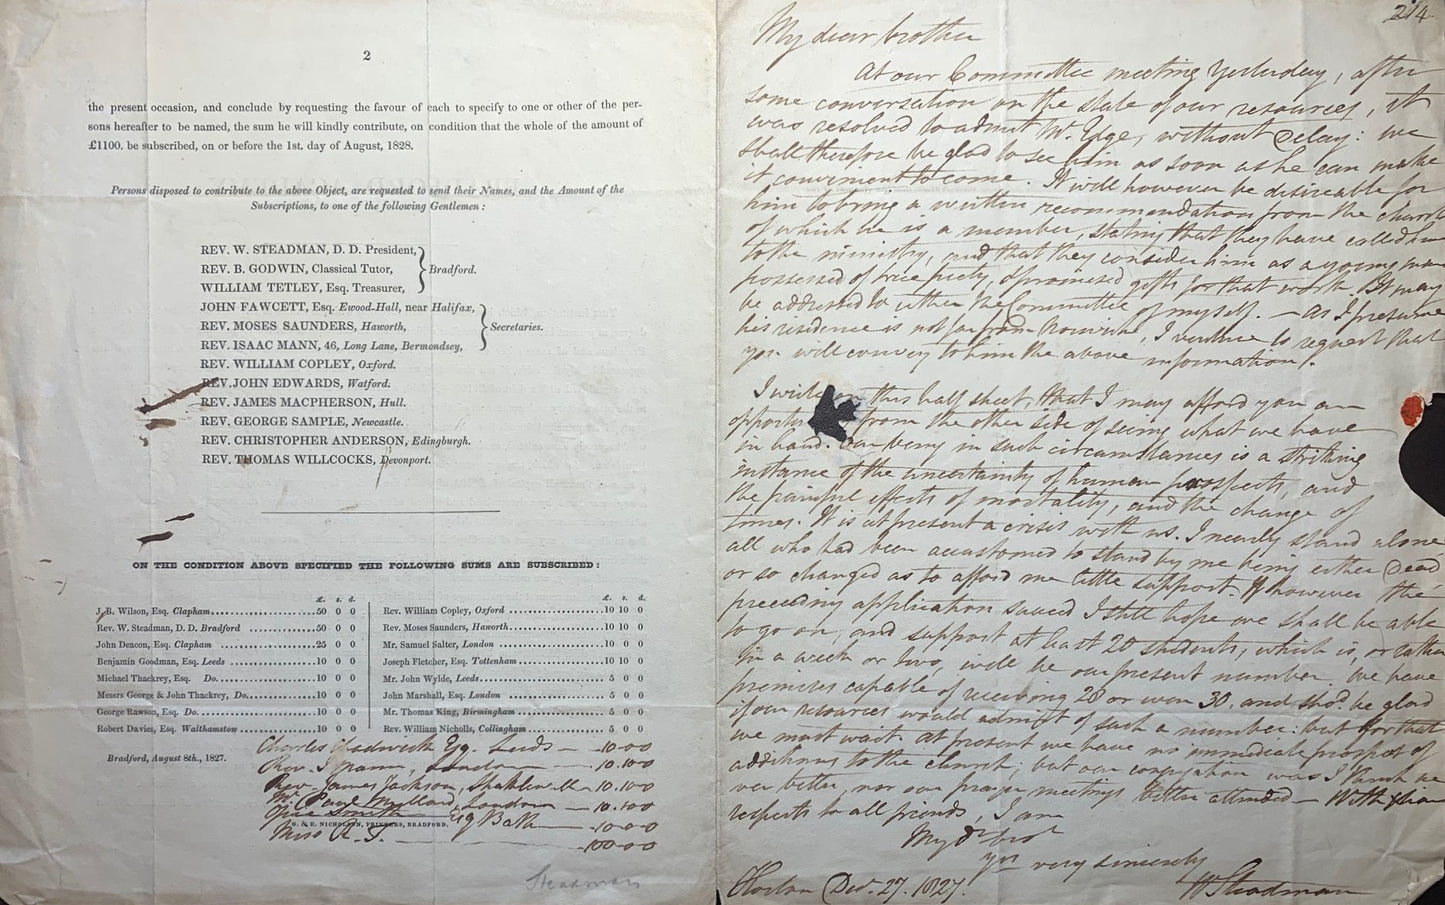 2
the present occasion, and conclude by requesting the favour of each to specify to one or other of the per-
sons hereafter to be named, the sum he will kindly contribute, on condition that the whole of the amount of
£1100. be subscribed, on or before the 1st. day of August, 1828.
Persons disposed to contribute to the above Object, are requested to send their Names, and the Amount of the
Subscriptions, to one of the following Gentlemen :
REV. W. STEADMAN, D. D. President,
REV. B. GODWIN, Classical Tutor, Bradford.
WILLIAM TETLEY, Esq. Treasurer,
JOHN FAWCETT, Esq. Ewood-Hall, near Halifax,
REV. MOSES SAUNDERS, Haworth, Secretaries.
REV. ISAAC MANN, 46, Long Lane, Bermondsey,
REV. WILLIAM COPLEY, Oxford.
REV. JOHN EDWARDS, Watford.
REV. JAMES MACPHERSON, Hull.
REV. GEORGE SAMPLE, Newcastle.
REV. CHRISTOPHER ANDERSON, Edingburgh.
REV. THOMAS WILLCOCKS, Devonport.
ON THE CONDITION ABOVE SPECIFIED THE FOLLOWING SUMS ARE SUBSCRIBED :
£. s. d.
J. B. Wilson, Esq. Clapham 50 0 0
Rev. W. Steadman, D. D. Bradford 50 0 0
John Deacon, Esq. Clapham 25 0 0
Benjamin Goodman, Esq. Leeds 10 0 0
Michael Thackrey, Esq. Do. 10 0 0
Messrs George & John Thackrey, Do. 10 0 0
George Rawson, Esq. Do. 10 0 0
Robert Davies, Esq. Walthamstow 10 0 0
£. s. d.
Rev. William Copley, Oxford 10 10 0
Rev. Moses Saunders, Haworth 10 10 0
Mr. Samuel Salter, London 10 0 0
Joseph Fletcher, Esq. Tottenham 10 10 0
Mr. John Wylde, Leeds 5 0 0
John Marshall, Esq. London 5 0 0
Mr. Thomas King, Birmingham 5 0 0
Rev. William Nicholls, Collingham 5 0 0
Bradford, August 8th., 1827.
Charles Chadwick Esq. Leeds — 10.0.0
Rev. I Mann, London — 10.10.0
Rev. James Jackson, 10.10.0
Mr. Paul Millard, London — 10.10.0
Smith Esq Bath — 10.0.0
G. & E. NICHOLSON, PRINTERS, BRADFORD.
Miss R. T. — 100.0.0
Steadman
214
My dear brother
At our Committee meeting Yesterday, after
some conversation on the state of our resources, it
was resolved to admit Mr. Edge, without Delay: we
shall therefore be glad to see him as soon as he can make
it convenient to come. It will however be desireable for
him to bring a written recommendation from the church
of which he is a member, stating that they have called him
to the ministry, and that they consider him as a young man
possessed of true piety, & promised gifts for that work. It may
be addressed to either the Committee or myself. — As I presume
his residence is not far from Norwich, I venture to request that
you will convey to him the above information.
I write on this half sheet, that I may afford you an
from the other side of seeing what we have
in hand. Our being in such circumstances is a striking
instance of the uncertainty of human prospects, and
the painful effects of mortality, and the change of
times. It is at present a crisis with us. I nearly stand alone
all who had been accustomed to stand by me being either Dead
or so changed as to afford me little support. If however the
preceding application succeed I still hope we shall be able
to go on, and support at least 20 students, which is, or rather
in a week or two, will be our present number. We have
premises capable of receiving 28 or even 30, and shod. be glad
if our resources would admit of such a number: but for that
we must wait. At present we have no immediate prospect of
additions to the church; but our congregation was I think ne
ver better, nor our prayer meetings better attended — With Xtian
respects to all friends, I am
My dr bror
yrs very sincerely
W Steadman
Horton Dec. 27. 1827.